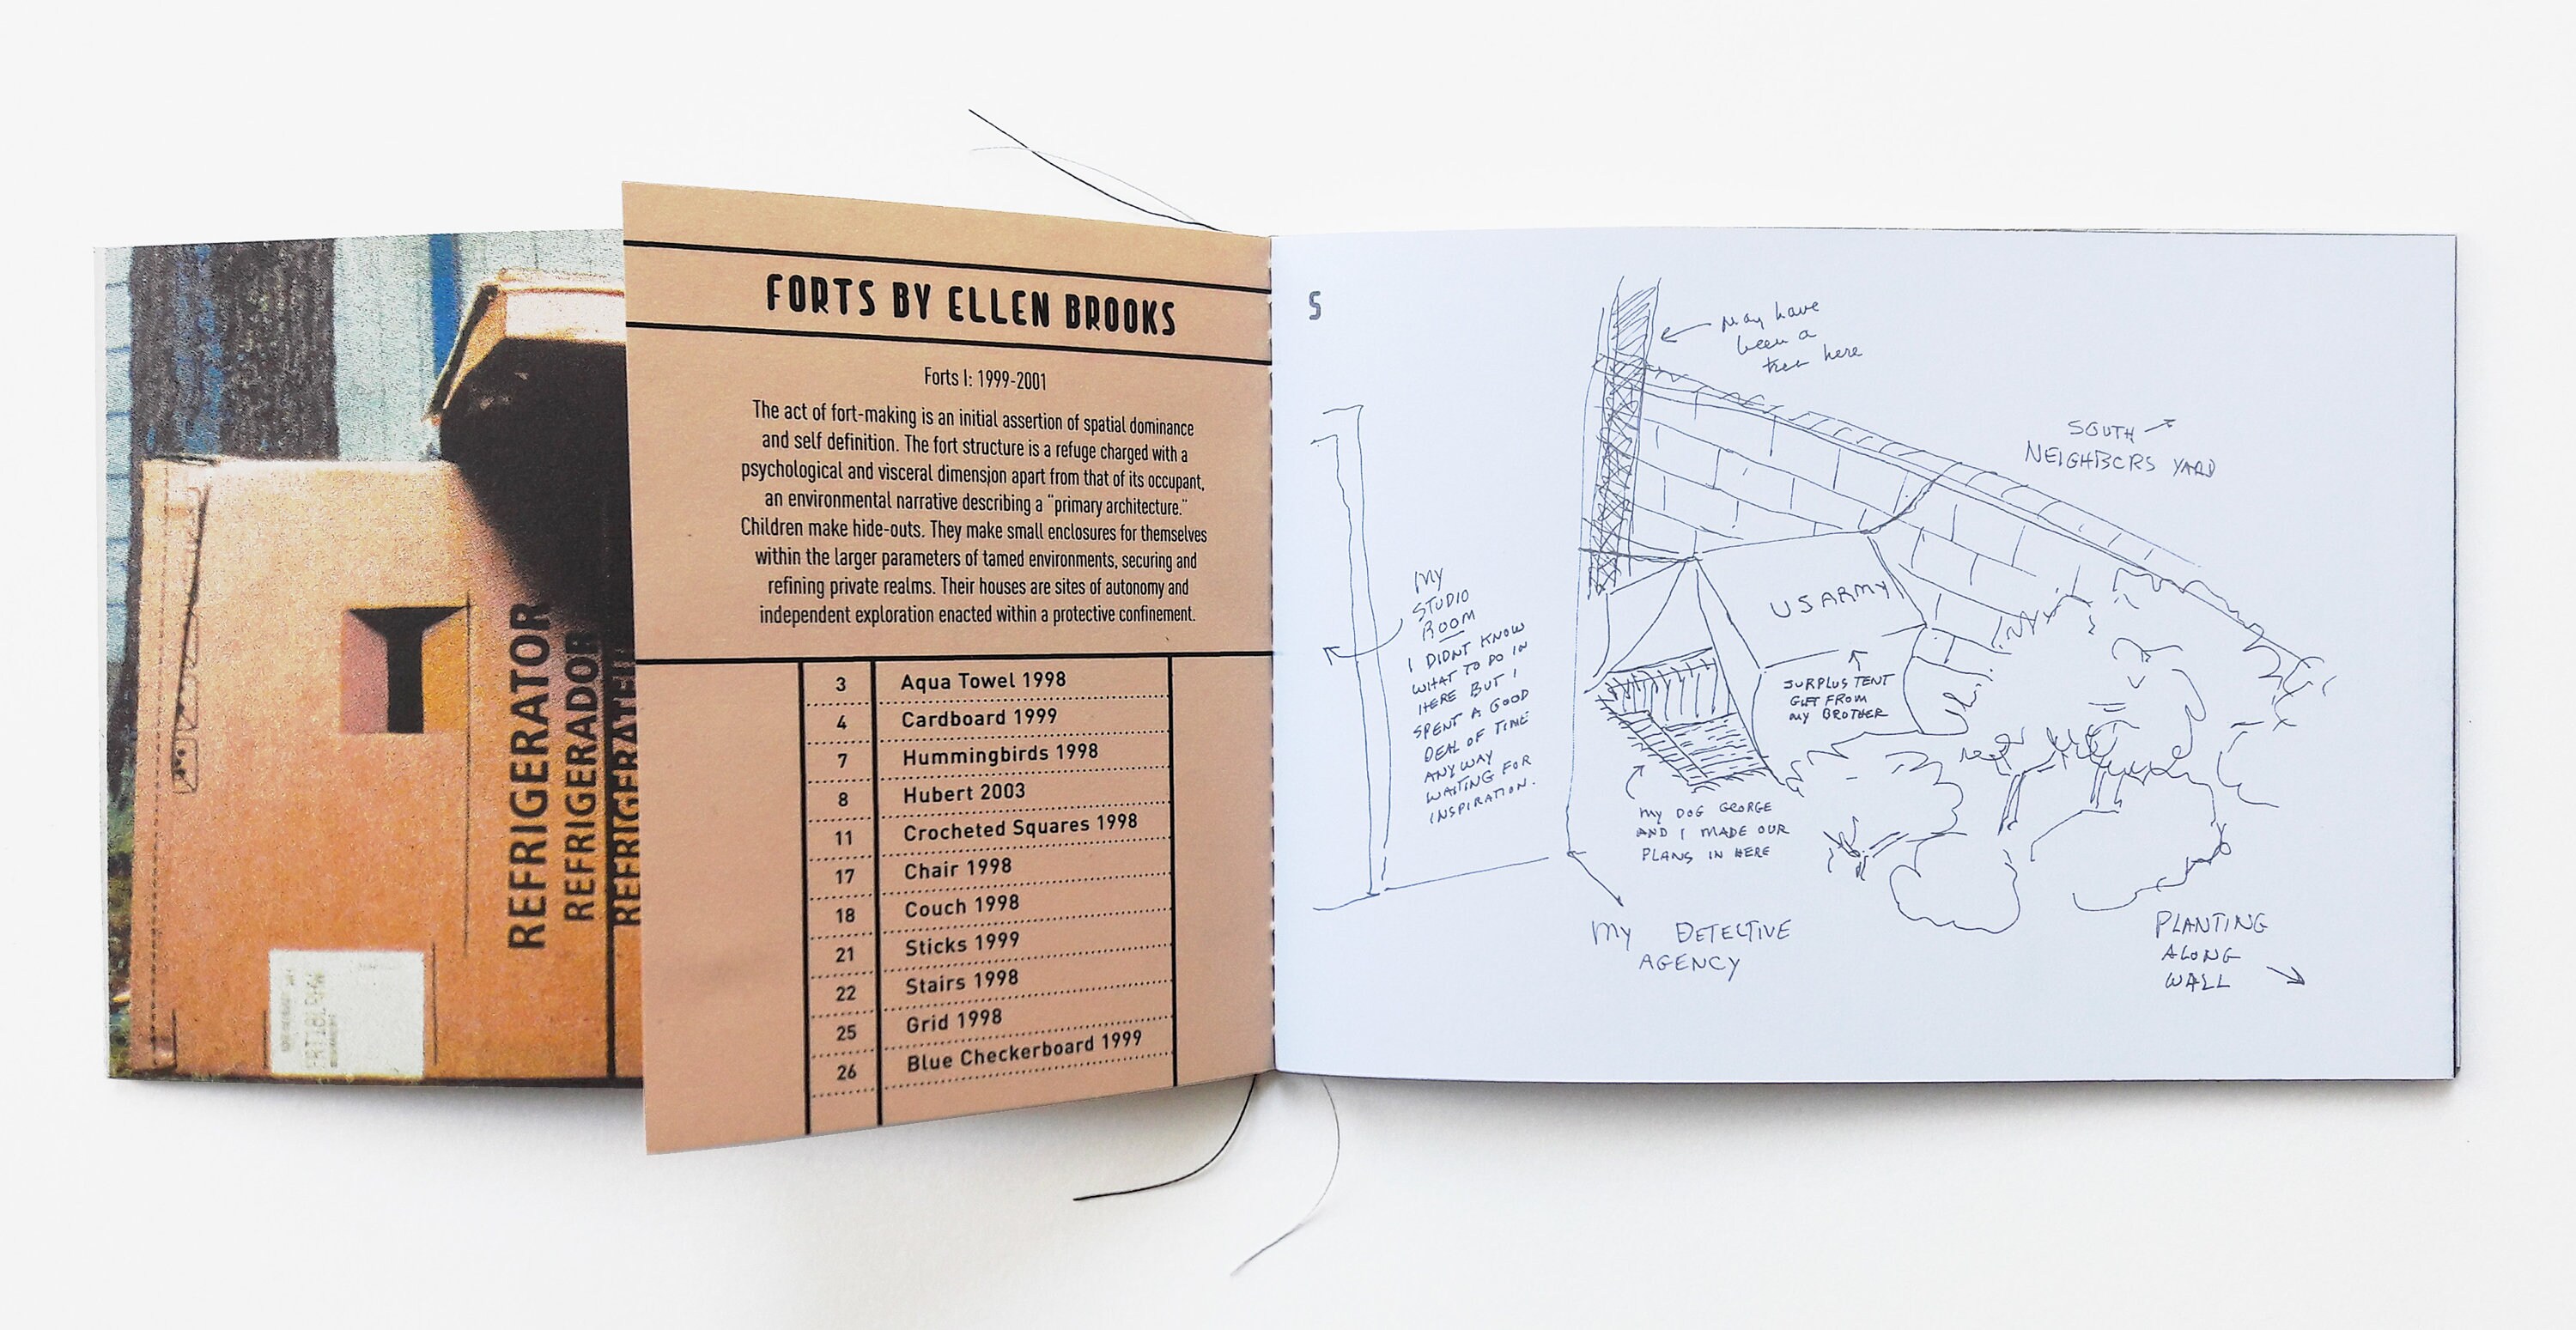 REFRIGERATOR
REFRIGERADOR
FORTS BY ELLEN BROOKS
Forts I: 1999-2001
The act of fort-making is an initial assertion of spatial dominance
and self definition. The fort structure is a refuge charged with a
psychological and visceral dimension apart from that of its occupant,
an environmental narrative describing a "primary architecture."
Children make hide-outs. They make small enclosures for themselves
within the larger parameters of tamed environments, securing and
refining private realms. Their houses are sites of autonomy and
independent exploration enacted within a protective confinement.
3 Aqua Towel 1998
4 Cardboard 1999
7 Hummingbirds 1998
8 Hubert 2003
11 Crocheted Squares 1998
17 Chair 1998
18 Couch 1998
21 Sticks 1999
22 Stairs 1998
25 Grid 1998
26 Blue Checkerboard 1999
5
May have
been a
tree here
SOUTH
NEIGHBORS YARD
MY
STUDIO
ROOM
I DIDNT KNOW
WHAT TO DO IN
HERE BUT I
SPENT A GOOD
DEAL OF TIME
ANYWAY
WAITING FOR
INSPIRATION.
US ARMY
SURPLUS TENT
GIFT FROM
MY BROTHER
MY DOG GEORGE
AND I MADE OUR
PLANS IN HERE
MY DETECTIVE
AGENCY
PLANTING
ALONG
WALL